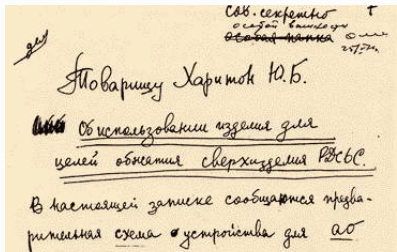 Сов. секретно
особой важности
особая папка
Товарищу Харитон Ю.Б.
Об использовании изделия для
целей обжатия сверхизделия РДС6С.
В настоящей записке сообщаются предва-
рительная схема устройства для АО